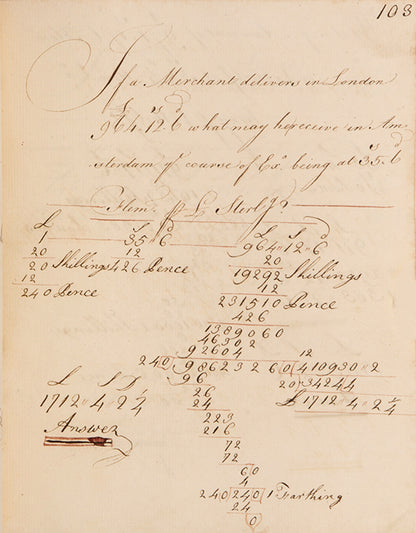 103
If a Merchant delivers in London
£ s d
964 12 6 what may he receive in Am=
s d
sterdam ye course of Exe. being at 35.6
Flem. p £ Sterlg?
£ s d £ s d
1 35 " 6 964 " 12 " 6
20 12 20
20 Shillings 426 Pence 19292 Shillings
12 12
240 Pence 231510 Pence
426
1389060
46302
92604 12
240) 98623260 (410930 " 2
96 20) 34244
£ S D 26 £1712 " 4 " 2 1/4
1712 " 4 2 1/4 24
Answer 223
216
72
72
60
4
240 (240 (1 Farthing
24
0